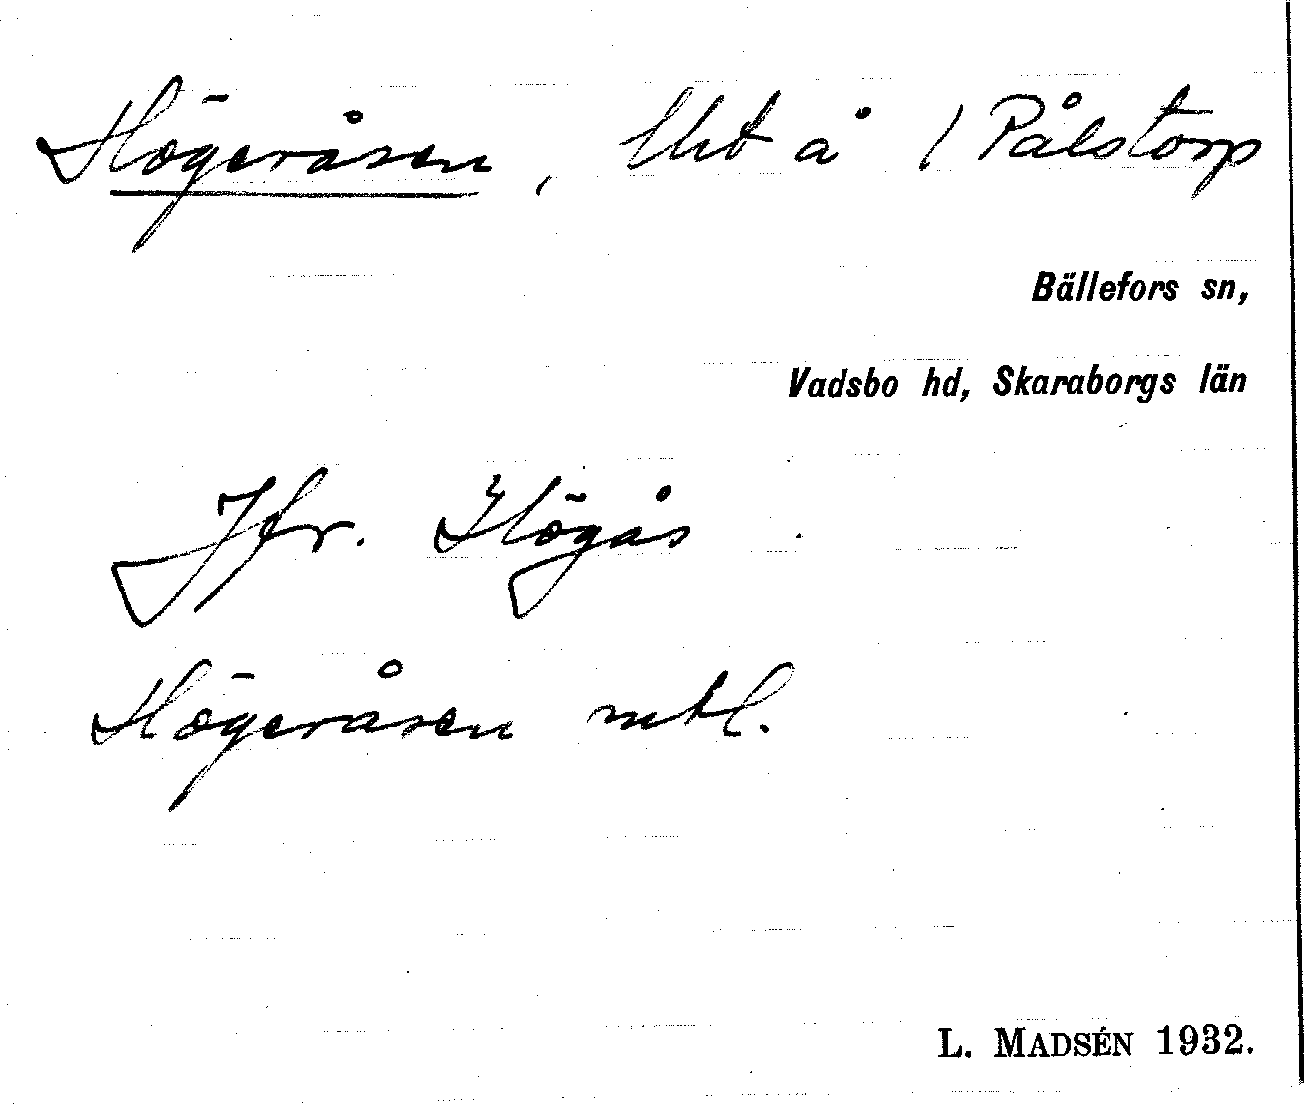 Högeråsen, lht å 1 Pålstorp
Bällefors sn,
Vadsbo hd, Skaraborgs län
Jfr. Högås
Högeråsen mtl.
L. MADSÉN 1932.